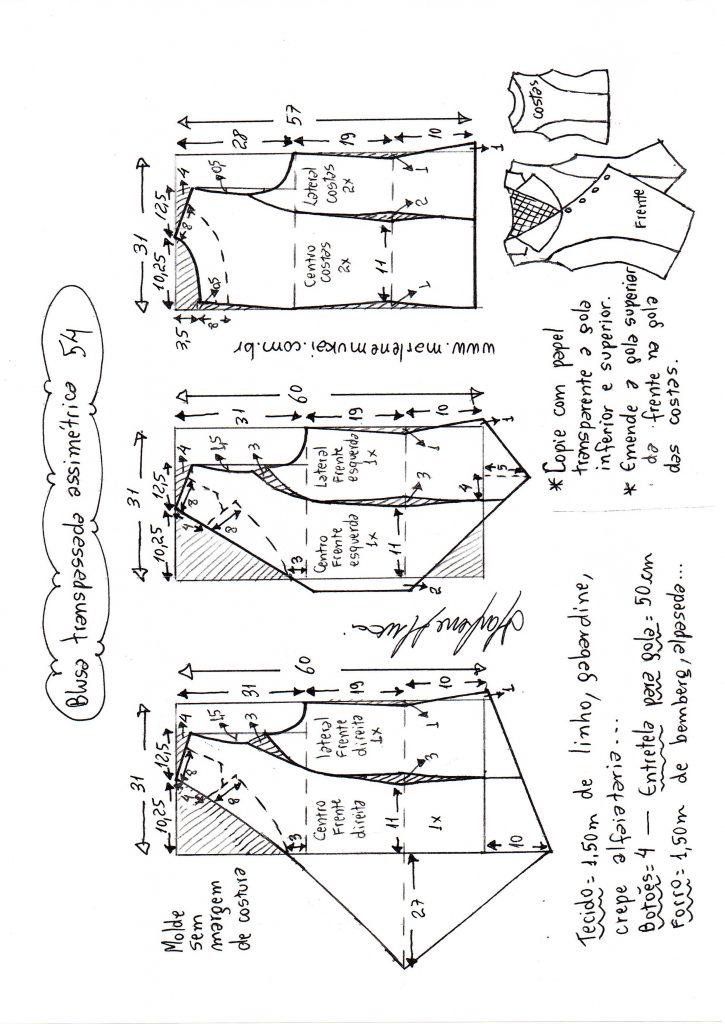 Blusa transpassada assimétrica 54
Molde
sem
margem
de costura
31
10,25
12,5
4
4
8
8
1,5
3
3
31
19
10
60
Centro
Frente
direita
1x
lateral
Frente
direita
1x
11
3
1
1
10
27
31
10,25
12,5
4
4
8
8
1,5
3
3
31
19
10
60
Centro
Frente
esquerda
1x
Lateral
Frente
esquerda
1x
11
3
1
1
2
4
5
www.marlenemukai.com.br
31
10,25
12,5
4
8
0,5
3,5
8
0,5
28
19
10
57
Centro
costas
2x
Lateral
costas
2x
11
2
1
1
1
Tecido = 1,50m de linho, gabardine,
crepe alfaiataria...
Botões = 4 — Entretela para gola = 50cm
Forro = 1,50m de bemberg, alpaseda...
* Copie com papel
transparente a gola
inferior e superior.
* Emende a gola superior
da frente na gola
das costas.
Frente
costas